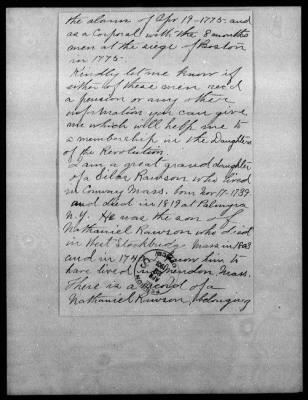 the alarm of Apr 19-1775- and
as a Corporal with the 8 months
men at the siege of Boston
in 1775-
Kindly let me know if
either of these men rec'd
a pension or any other
information you can give
me which will help me to
a membership in the Daughters
of the Revolution.
I am a great grand daughter
of a Silas Rawson who lived
in Conway Mass. born Nov 17-1739
and died in 1819 at Palmyra
N.Y. He was the son of
Nathaniel Rawson who died
in West Stockbridge Mass in 1803
and in 174 know him to
have lived in Mendon, Mass.
There is a record of a
Nathaniel Rawson, belonging